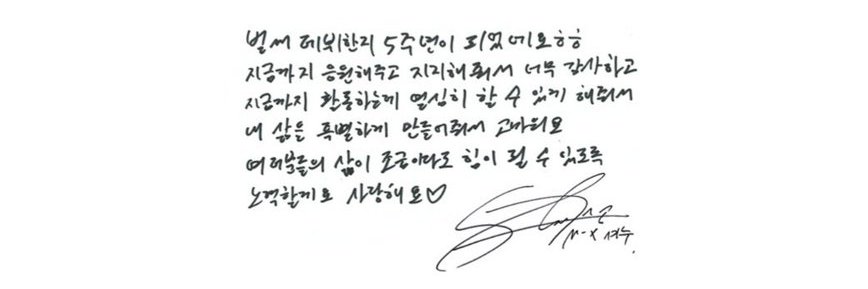 벌써 데뷔한지 5주년이 되었네요ㅎㅎ
지금까지 응원해주고 지지해줘서 너무 감사하고
지금까지 활동하는게 열심히 할 수 있게 해줘서
내 삶을 특별하게 만들어줘서 고마워요
여러분들의 삶이 조금이라도 힘이 될 수 있도록
노력할게요 사랑해요♡
M-X 셔누